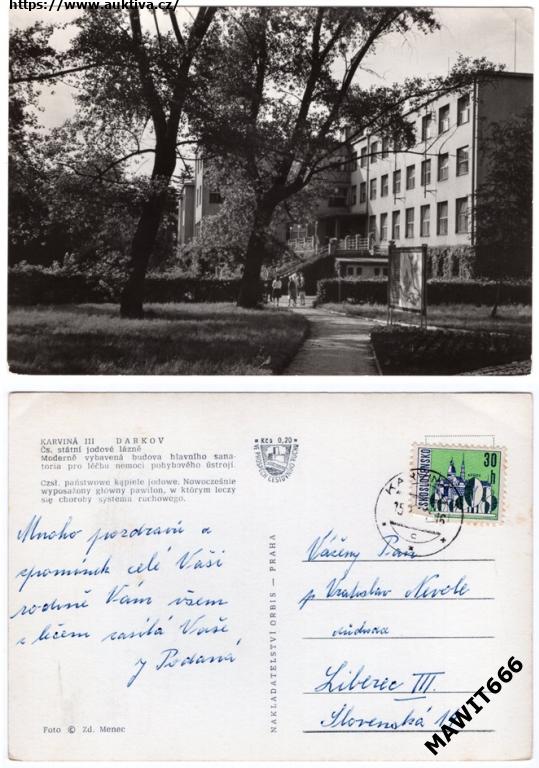 https://www.auktiva.cz/
KARVINÁ III DARKOV
Čs. státní jodové lázně
Moderně vybavená budova hlavního sana-
toria pro léčbu nemocí pohybového ústrojí.
Czsł. państwowe kąpiele jodowe. Nowocześnie
wyposażony główny pawilon, w którym leczy
się choroby systemu ruchowego.
Kčs 0,20
ČESKOSLOVENSKO
30
h
Mnoho pozdravů a
vzpomínek celé Vaší
rodině Vám všem
z léčení zasílá Vaše
J Podaná
Foto © Zd. Menec
NAKLADATELSTVÍ ORBIS — PRAHA
Vážený Pan
p Vratislav Nevole
důchodce
Liberec III.
Slovenská
MAWIT666